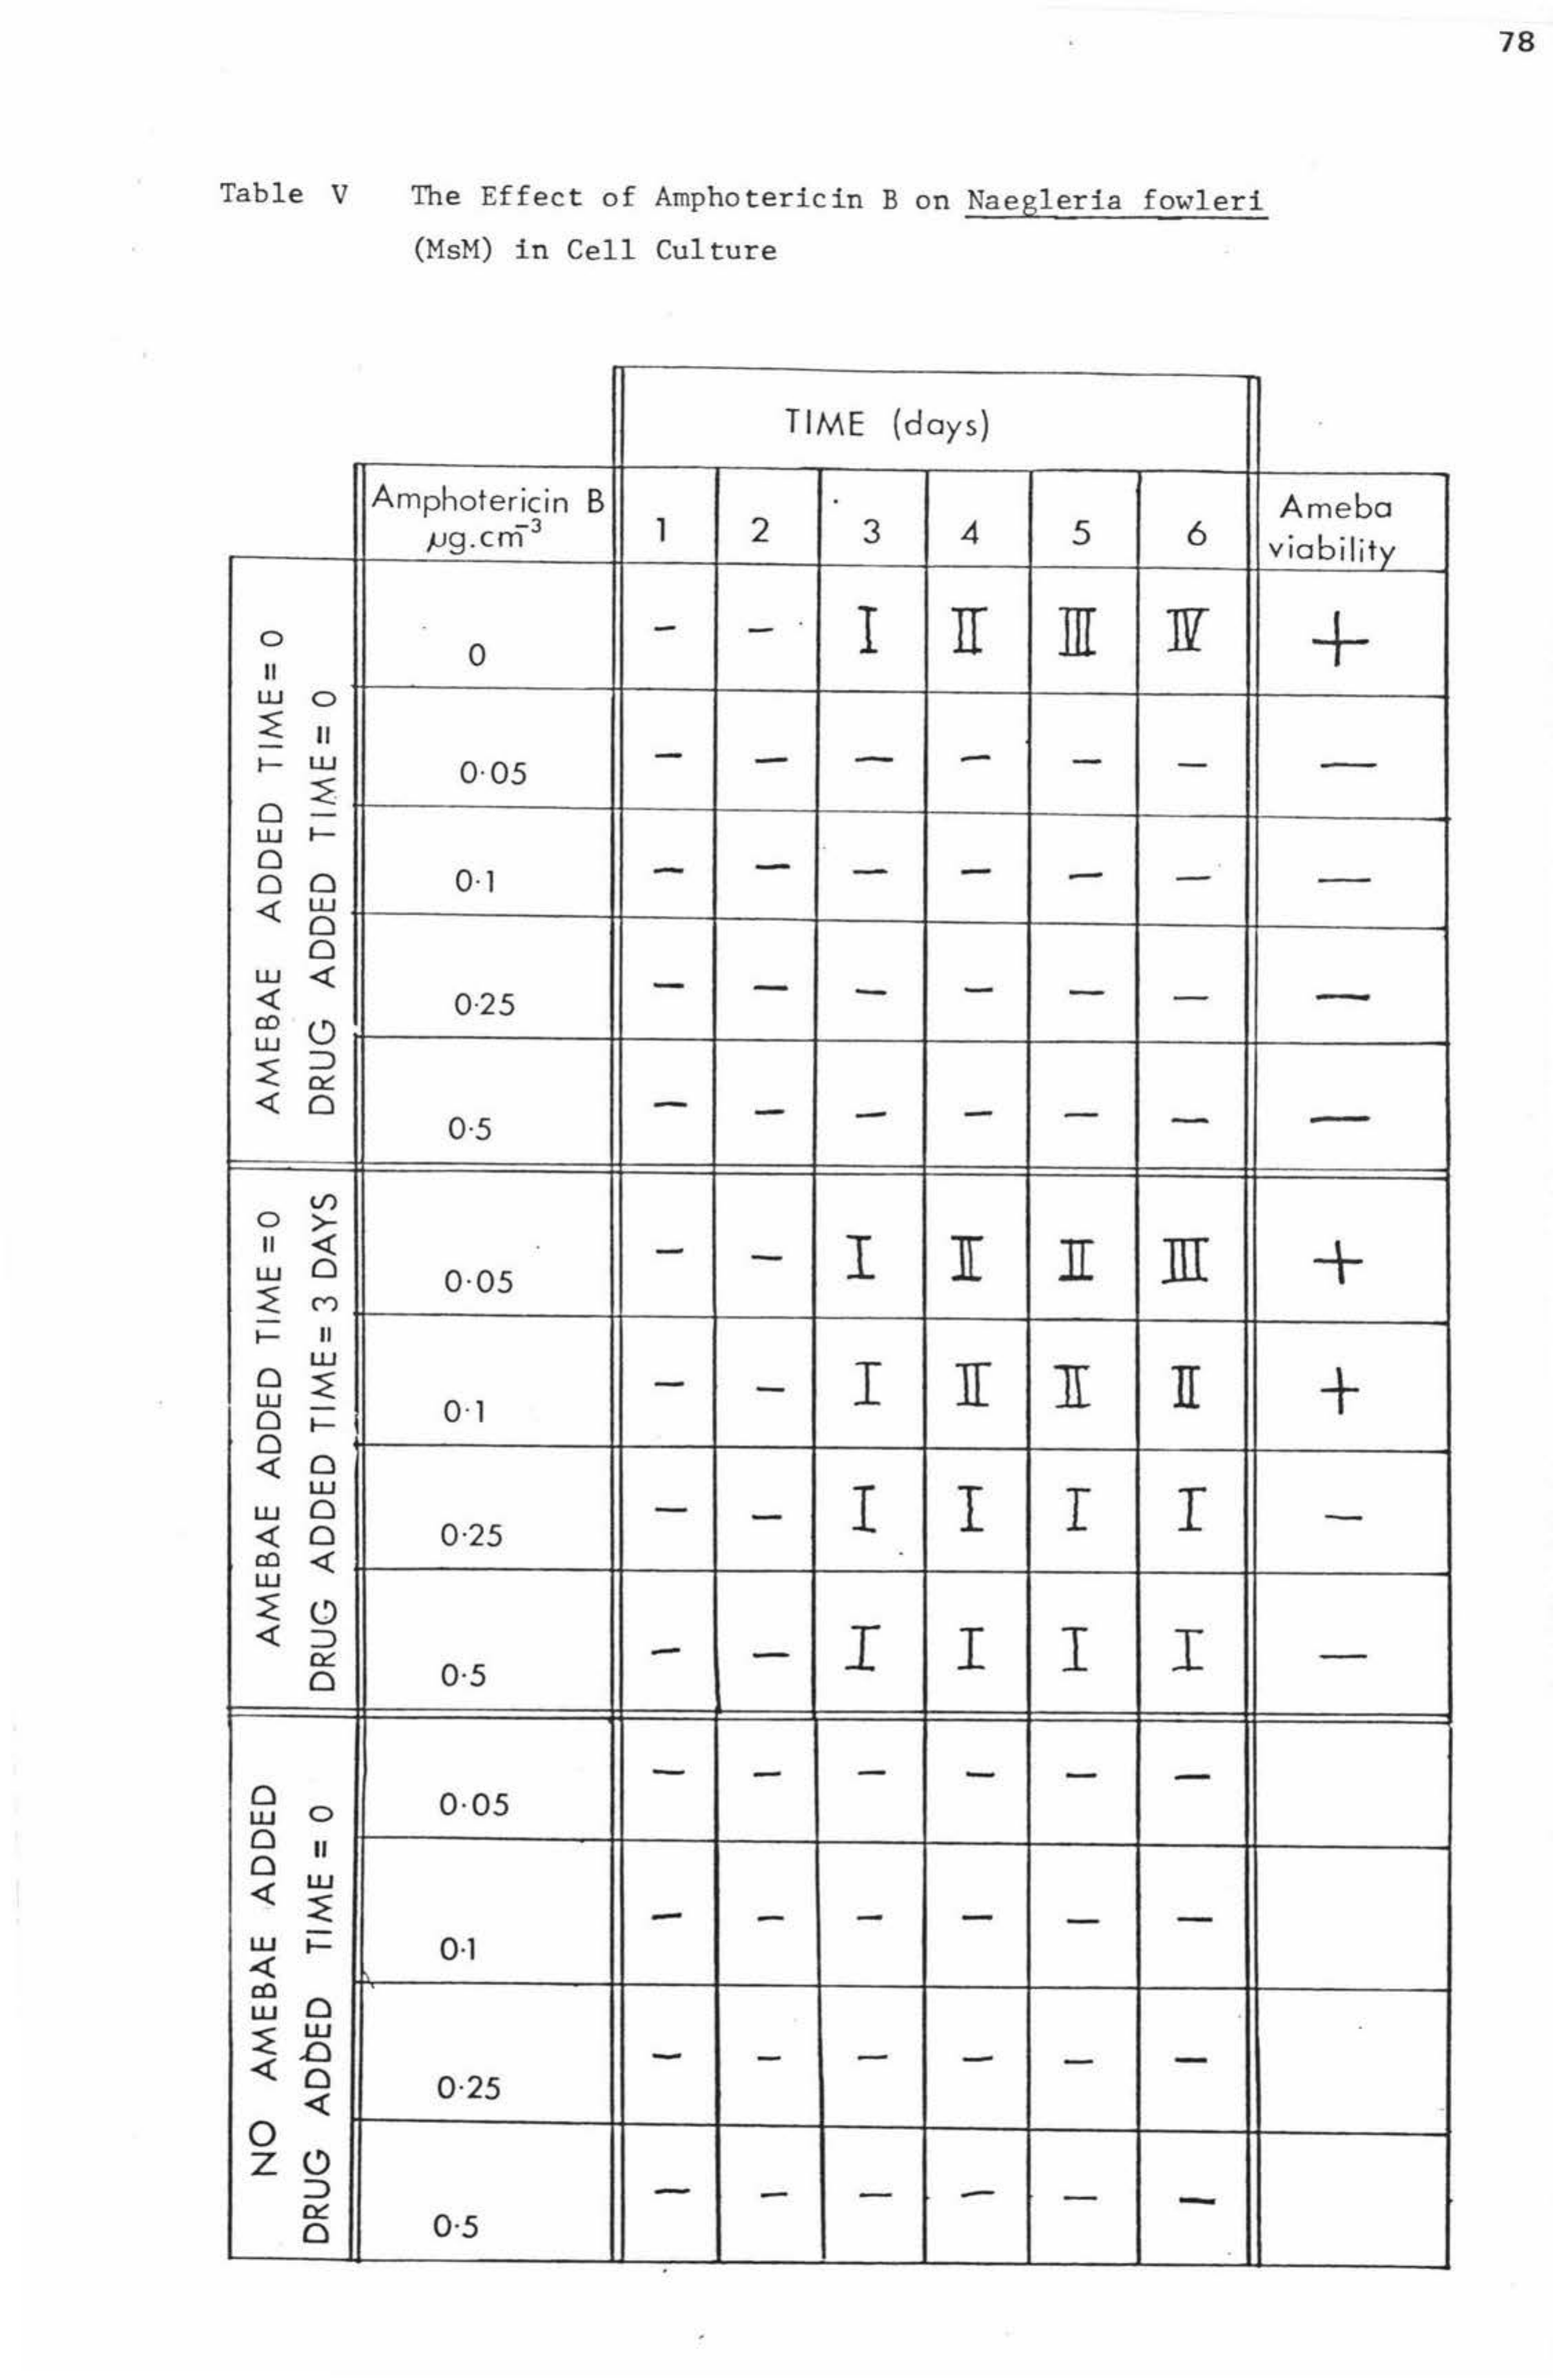 78
Table V The Effect of Amphotericin B on Naegleria fowleri
(MsM) in Cell Culture
TIME (days)
Amphotericin B
µg.cm⁻³ 1 2 3 4 5 6 Ameba
viability
AMEBAE ADDED TIME = 0
DRUG ADDED TIME = 0
0 – – I II III IV +
0·05 – – – – – – –
0·1 – – – – – – –
0·25 – – – – – – –
0·5 – – – – – – –
AMEBAE ADDED TIME = 0
DRUG ADDED TIME = 3 DAYS
0·05 – – I II II III +
0·1 – – I II II II +
0·25 – – I I I I –
0·5 – – I I I I –
NO AMEBAE ADDED
DRUG ADDED TIME = 0
0·05 – – – – – –
0·1 – – – – – –
0·25 – – – – – –
0·5 – – – – – –